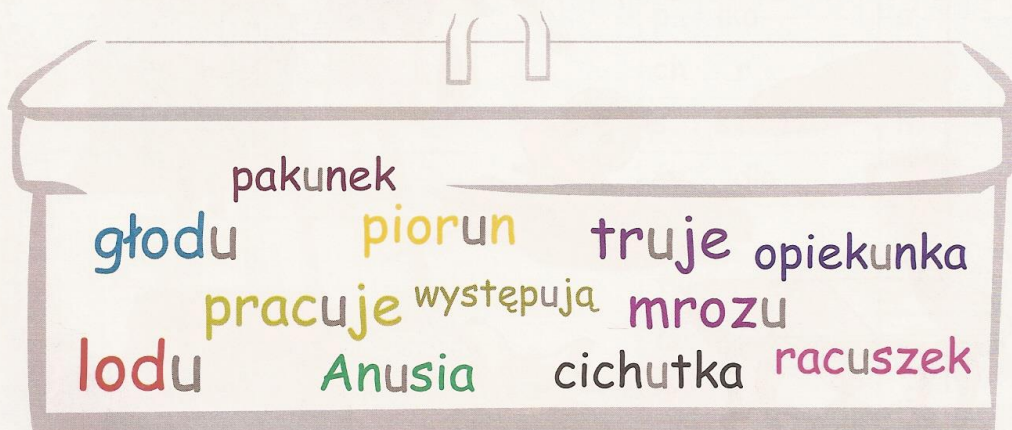 pakunek
głodu piorun truje opiekunka
pracuje występują mrozu
lodu Anusia cichutka racuszek